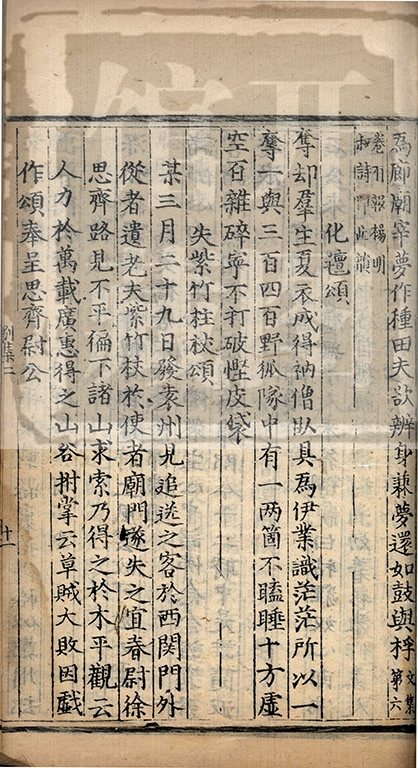 爲廊廟宰夢作種田夫欲辨身兼夢還如鼓與桴文集第六
卷刊報楊明
叔詩即此頌
化𣰽頌
奪却羣生夏衣成得衲僧臥具爲伊業識茫茫所以一
奪一與三百四百野狐隊中有一兩箇不瞌睡十方虛
空百雜碎寧不打破慳皮袋
失紫竹柱杖頌
某三月二十九日發袁州見追送之客於西関門外
從者遺老夫紫竹杖於使者廟門遂失之宜春尉徐
思齊路見不平徧下諸山求索乃得之於木平觀云
人力於萬載廣惠得之山谷拊掌云草賊大敗因戲
作頌奉呈思齊尉公
別集二
十一